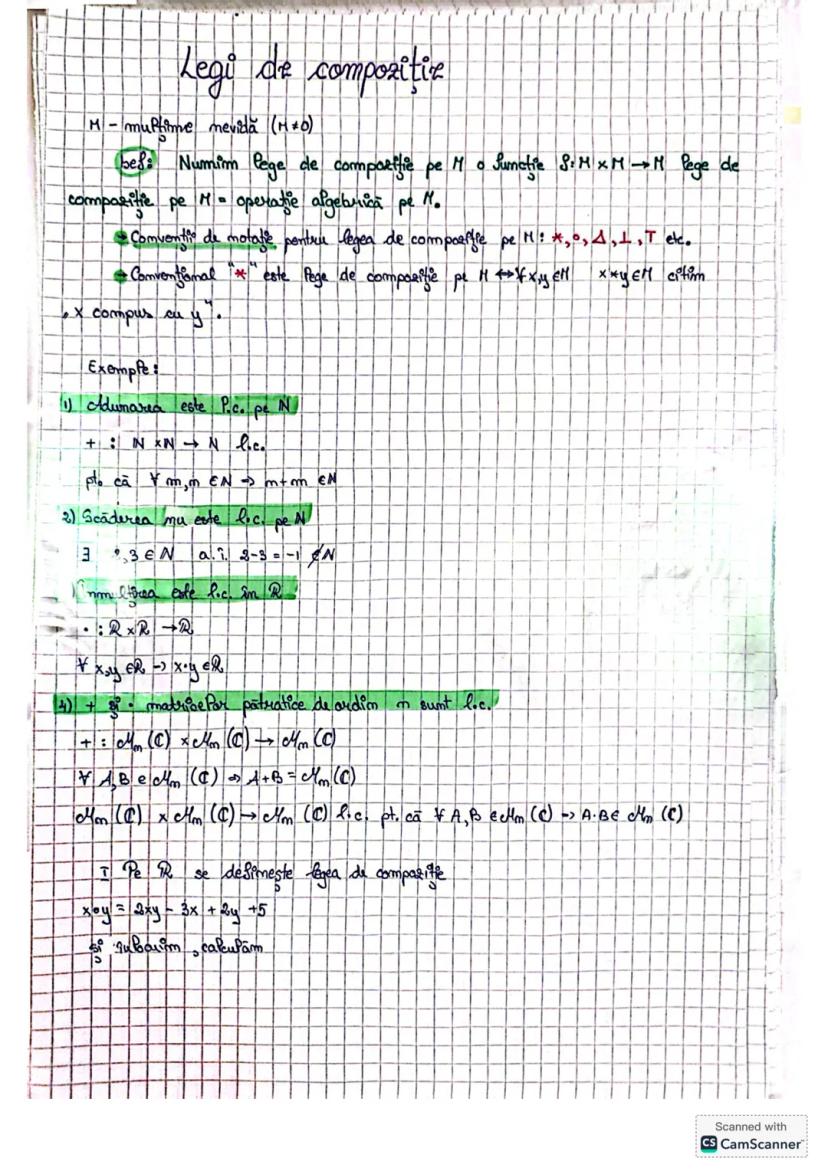 Legi de compoziție
M - mulțime nevidă (M≠∅)
Def: Numim lege de compoziție pe M o funcție f: M × M → M lege de
compoziție pe M = operație algebrică pe M.
Convenții de notație pentru legea de compoziție pe M: *, ∘, Δ, ⊥, T etc.
Convențional "*" este lege de compoziție pe M ⟷ ∀ x,y ∈ M x*y ∈ M citim
„x compus cu y".
Exemple:
1) Adunarea este l.c. pe N
+ : N × N → N l.c.
pt. că ∀ m,n ∈ N ⇒ m+n ∈ N
2) Scăderea nu este l.c. pe N
∃ 2,3 ∈ N a.î. 2-3 = -1 ∉ N
Înmulțirea este l.c. în R
· : R × R → R
∀ x,y ∈ R → x·y ∈ R
4) + și · matricelor pătratice de ordin n sunt l.c.
+ : Mn (C) × Mn (C) → Mn (C)
∀ A,B ∈ Mn (C) ⇒ A+B = Mn (C)
Mn (C) × Mn (C) → Mn (C) l.c. pt. că ∀ A,B ∈ Mn (C) -> A·B ∈ Mn (C)
I Pe R se definește legea de compoziție
x∘y = 2xy - 3x + 2y + 5
și, calculăm
Scanned with
CS CamScanner